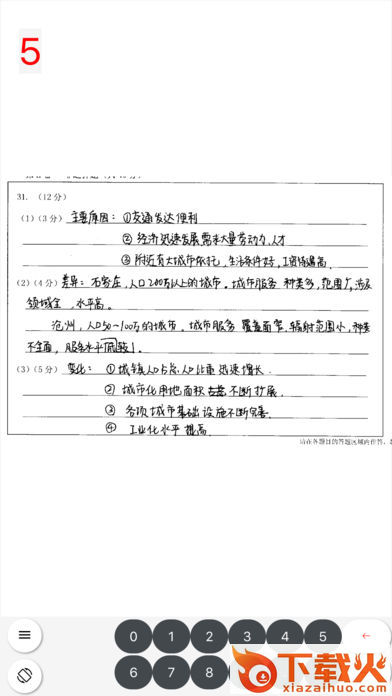 5
31. (12分)
(1)(3分) 主要原因：①交通发达便利
②经济迅速发展需求大量劳动力、人才
③附近有大城市依托，生活条件好，工资待遇高.
(2)(4分) 差异：石家庄，人口200万以上的城市。城市服务 种类多，范围广，涉及
领域全，水平高。
沧州，人口50~100万的城市。城市服务 覆盖面窄，辐射范围小，种类
不全面，服务水平
(3)(5分) 变化：①城镇人口占总人口比重 迅速增长.
②城市化用地面积 不断扩展.
③各项城市基础设施不断完善.
④工业化水平提高.
请在各题目的答题区域内作答，
0 1 2 3 4 5 ←
6 7 8
下载火
xiazaihuo.com